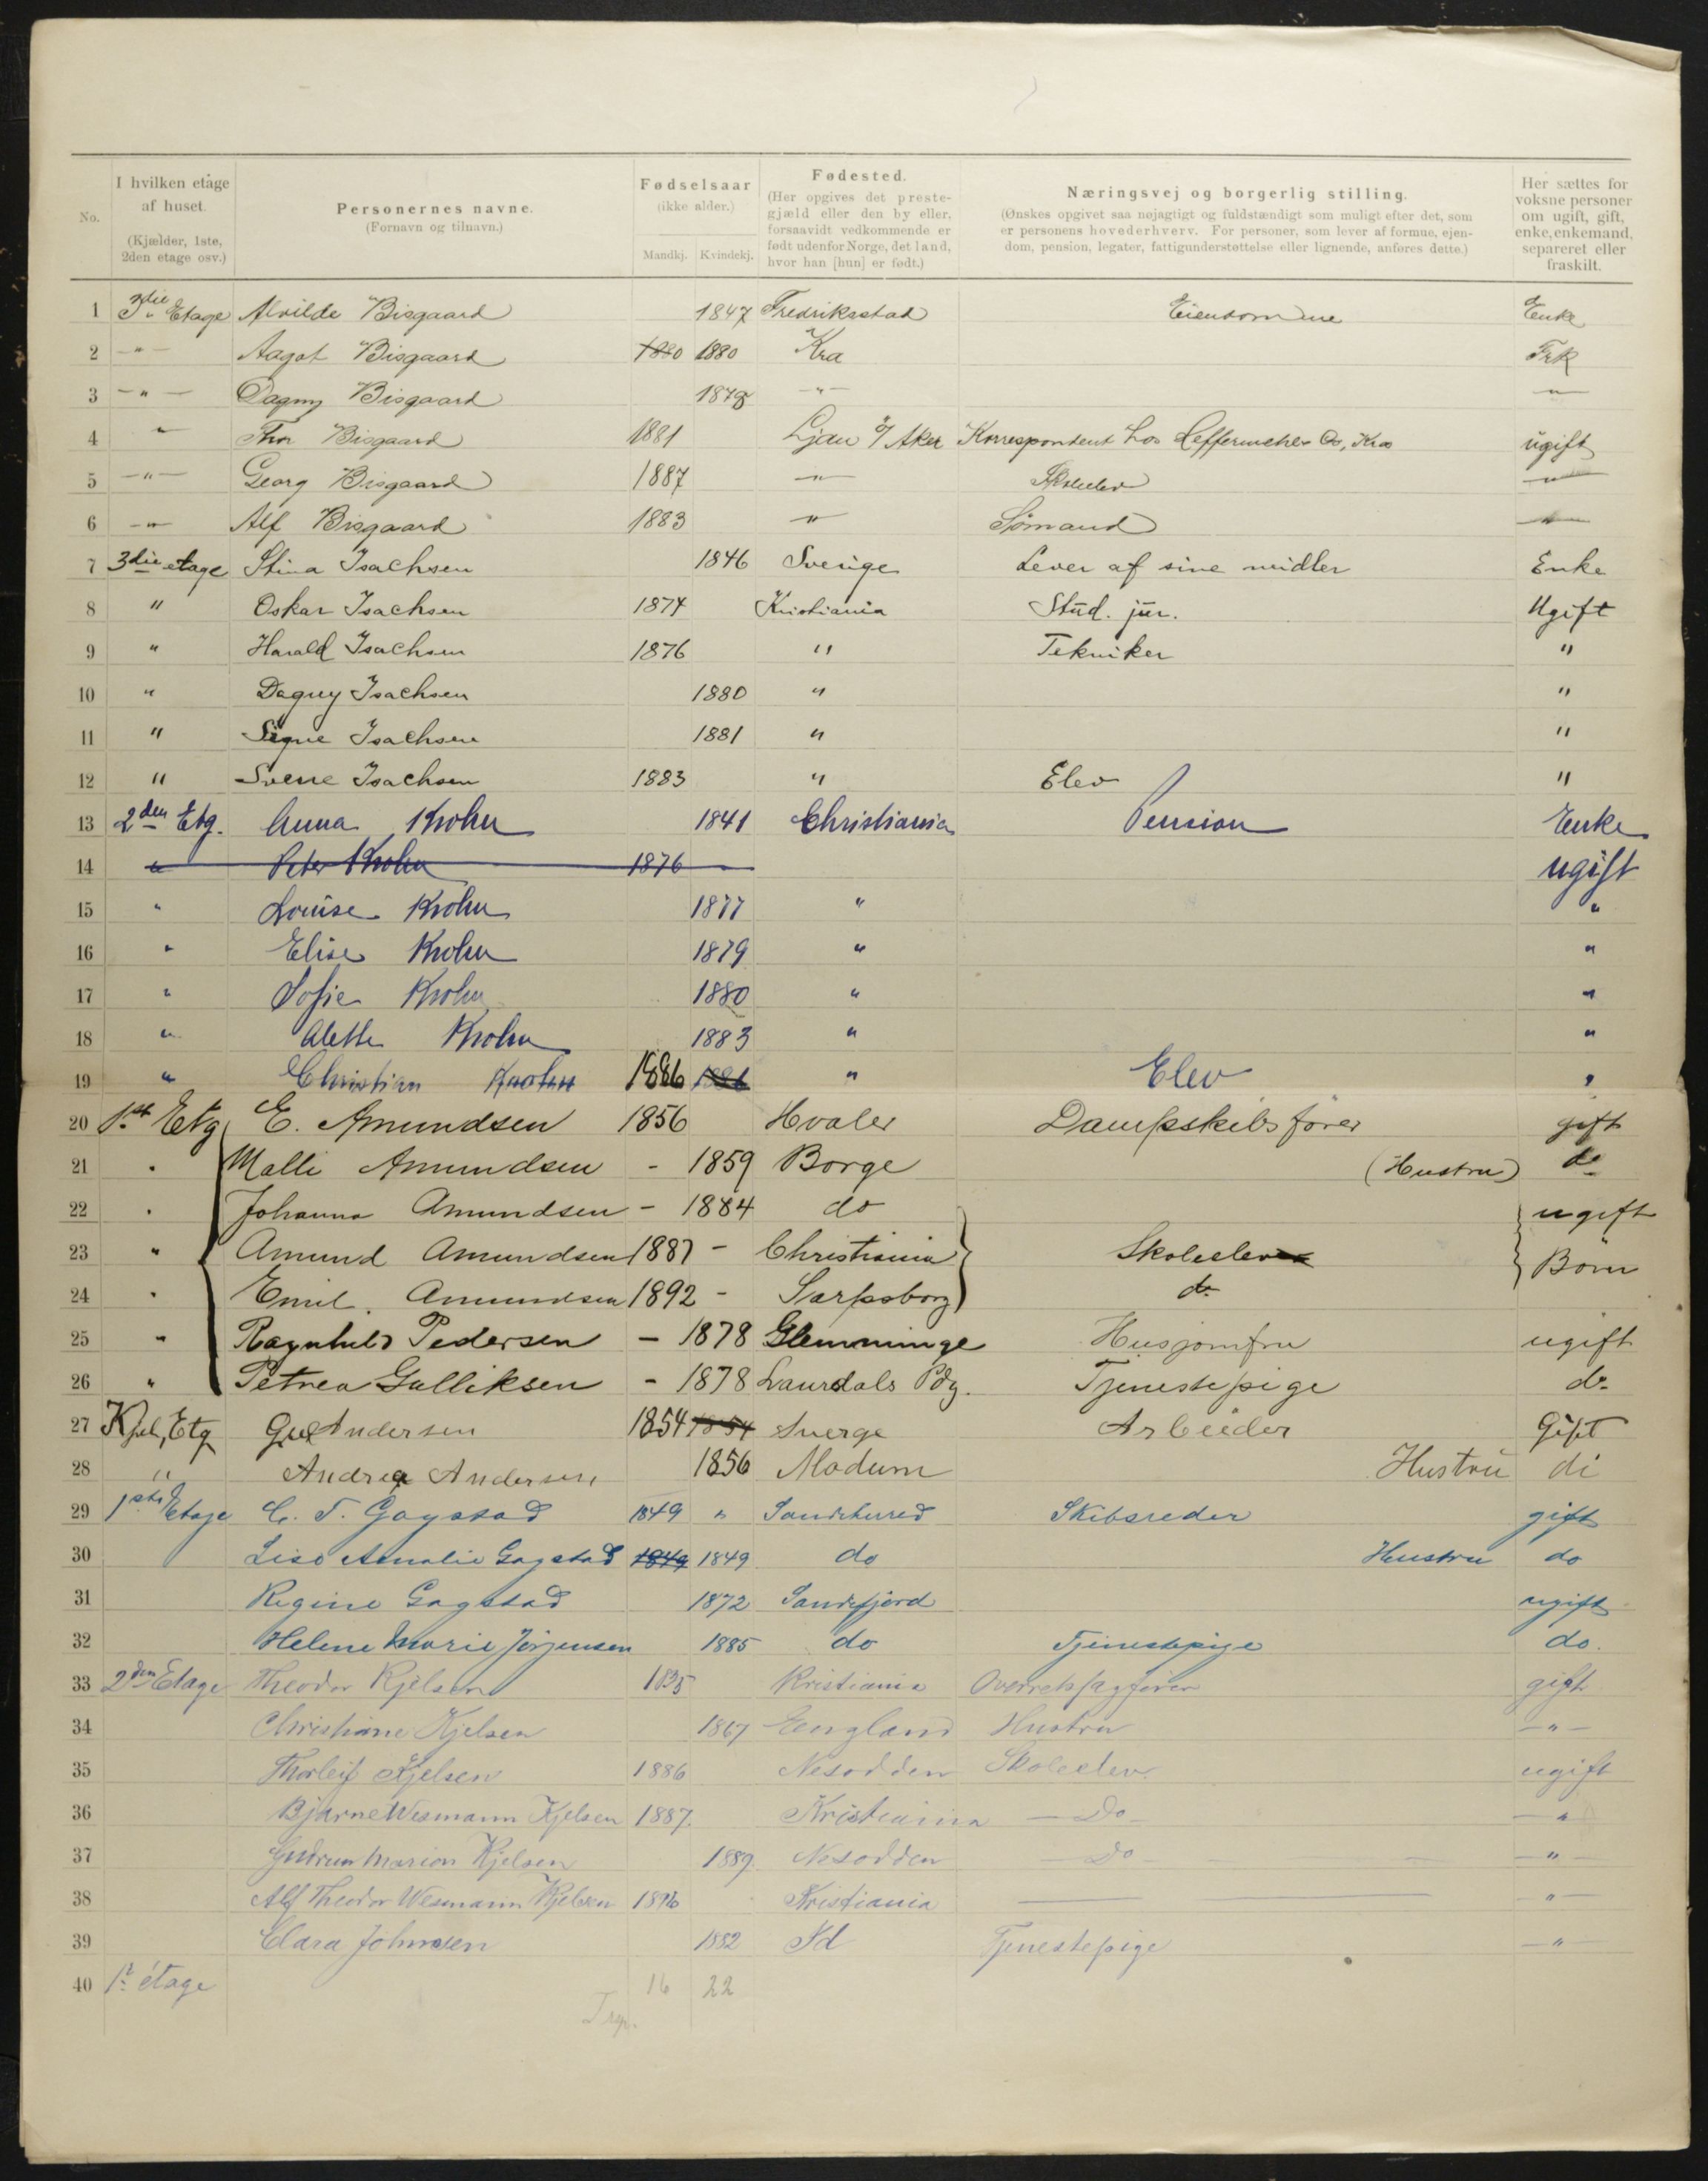 No. | I hvilken etage af huset. (Kjælder, 1ste, 2den etage osv.) | Personernes navne. (Fornavn og tilnavn.) | Fødselsaar (ikke alder.) Mandkj. Kvindekj. | Fødested. (Her opgives det prestegjæld eller den by eller, forsaavidt vedkommende er født udenfor Norge, det land, hvor han [hun] er født.) | Næringsvej og borgerlig stilling. (Ønskes opgivet saa nøjagtigt og fuldstændigt som muligt efter det, som er personens hovederhverv. For personer, som lever af formue, ejendom, pension, legater, fattigunderstøttelse eller lignende, anføres dette.) | Her sættes for voksne personer om ugift, gift, enke, enkemand, separeret eller fraskilt.
1 3die Etage Alvilde Bisgaard 1847 Fredriksstad Enke
2 -"- Aagot Bisgaard 1880 1880 Kra Frk
3 -"- Dagny Bisgaard -"- -"-
4 " Thor Bisgaard 1881 Ljan i/ Aker Korrespondent ugift
5 -"- Georg Bisgaard 1887 -"- Skoleelev -"-
6 -"- Alf Bisgaard 1883 -"- Sømand -"-
7 3die etage Stina Isachsen 1846 Sverige Lever af sine midler Enke
8 " Oskar Isachsen 1874 Kristiania Stud. jur. Ugift
9 " Harald Isachsen 1876 " Tekniker "
10 " Dagny Isachsen 1880 " "
11 " Signe Isachsen 1881 " "
12 " Sverre Isachsen 1883 " Elev "
13 2den Etg. Anna Krohn 1841 Christiania Pension Enke
14 " Peter Krohn 1876 ugift
15 " Louise Krohn 1877 " "
16 " Elise Krohn 1879 " "
17 " Sofie Krohn 1880 " "
18 " Alette Krohn 1883 " "
19 " Christian Krohn 1886 1886 " Elev "
20 1st Etg E. Amundsen 1856 Hvaler Dampskibsfører gift
21 " Malli Amundsen - 1859 Borge (Hustru) do
22 " Johanna Amundsen - 1884 do ugift
23 " Amund Amundsen 1887 - Christiania Skoleelev Børn
24 " Emil Amundsen 1892 - Sarpsborg do
25 " Ragnhild Pedersen - 1878 Glemminge Husjomfru ugift
26 " Petrea Gulliksen - 1878 Laurdals Pdg. Tjenestepige do
27 Kjel, Etg Andersen 1854 1854 Sverge Arbeider Gift
28 " Andrea Andersen 1856 Modum Hustru di
29 1ste Etage C. T. Gogstad 1849 " Sandeherred Skibsreder gift
30 Lise Amalie Gogstad 1849 1849 do Hustru do
31 Regine Gogstad 1872 Sandefjord ugift
32 Helene Marie Jørjensen 1885 do Tjenestepige do.
33 2den Etage Theodor Kjelsen 1835 Kristiania Overretssagfører gift
34 Christiane Kjelsen 1867 Eengland Hustru -"-
35 Thorleif Kjelsen 1886 Nesodden Skoleelev ugift
36 Bjarne Wesmann Kjelsen 1887. Kristiania - Do - -"-
37 Gudrun Marion Kjelsen 1889. Nesodden - Do - -"-
38 Alf Theodor Wesmann Kjelsen Kristiania -"-
39 Clara Johnsen 1882 Id Tjenestepige -"-
40 1ste étage 16 22